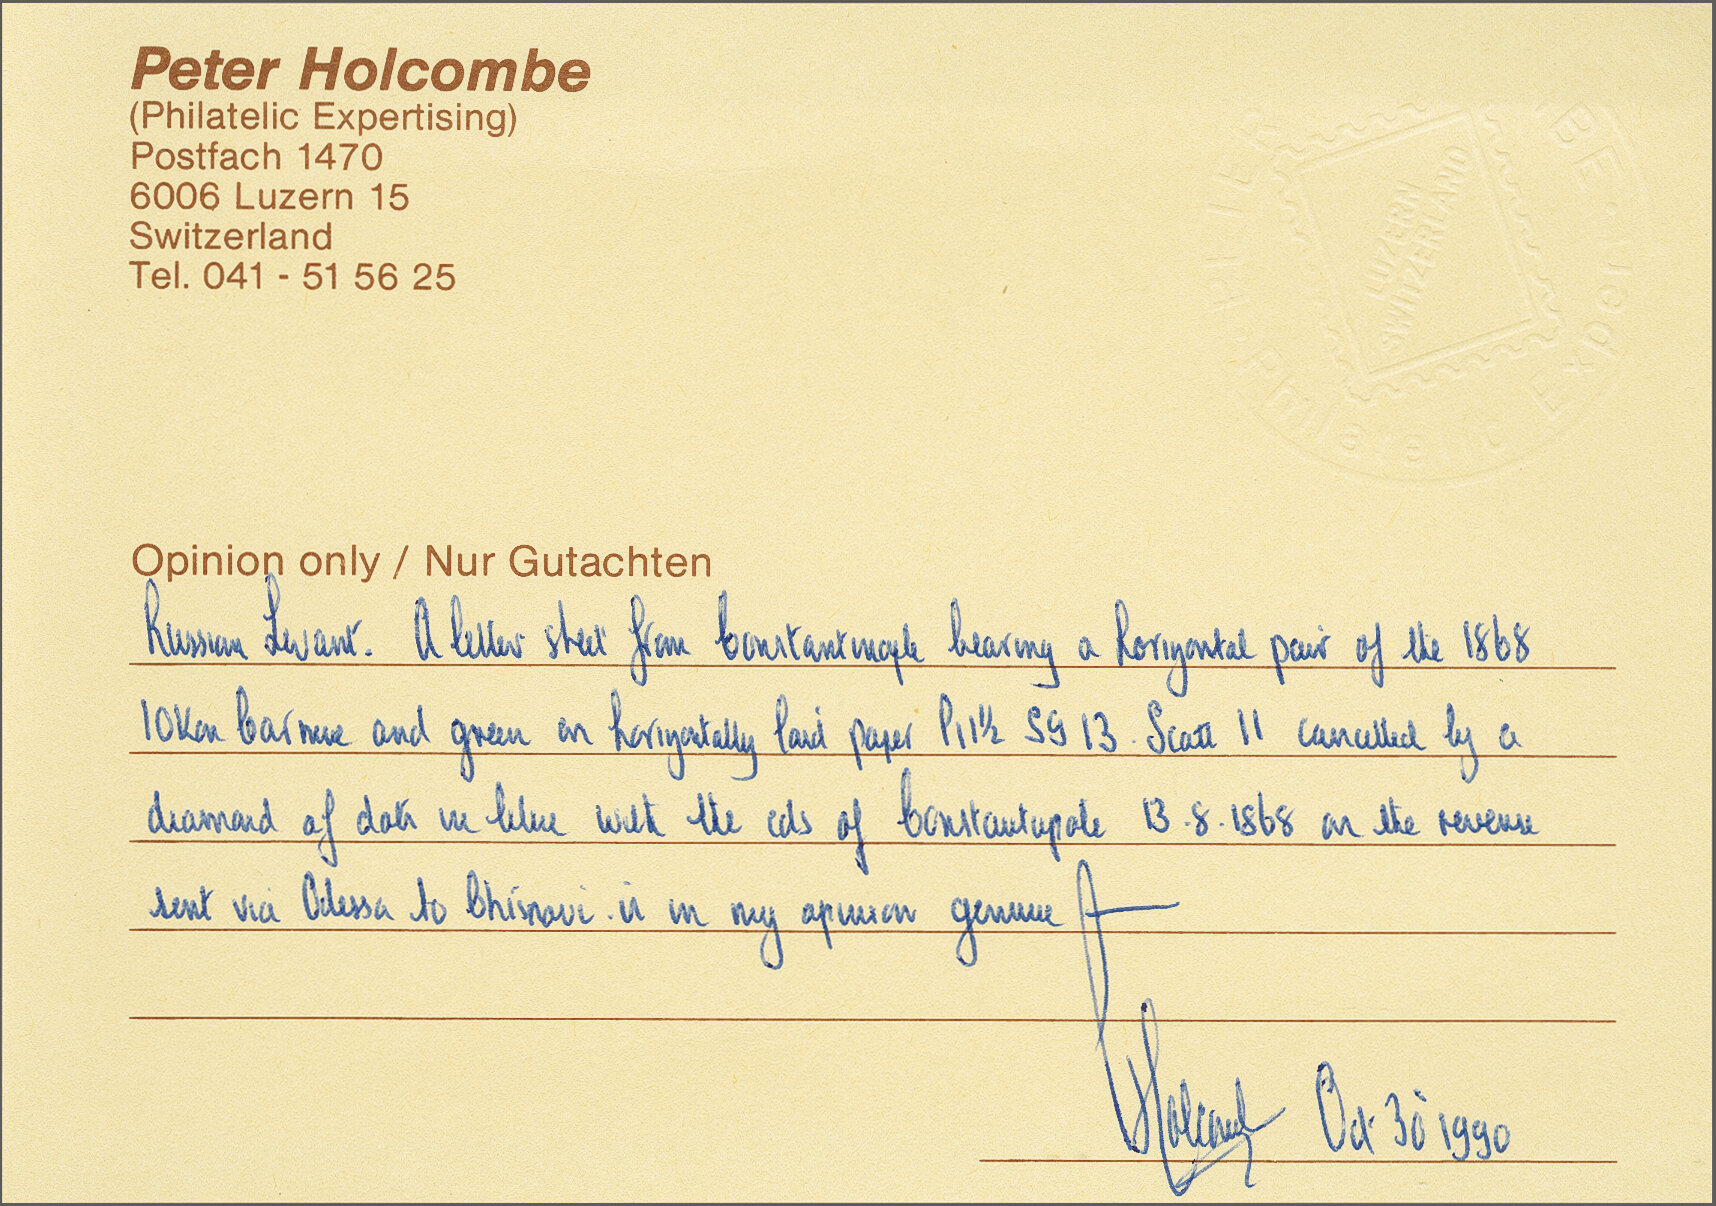 Peter Holcombe
(Philatelic Expertising)
Postfach 1470
6006 Luzern 15
Switzerland
Tel. 041 - 51 56 25
PETER HOLCOMBE · Philatelic Expert
LUZERN
SWITZERLAND
Opinion only / Nur Gutachten
Russian Levant. A letter sheet from Constantinople bearing a horizontal pair of the 1868
10Kon Carmine and green on horizontally laid paper P11½ SG 13. Scott 11 cancelled by a
diamond of dots in blue with the cds of Constantinople 13.8.1868 on the reverse
sent via Odessa to is in my opinion genuine
Holcombe Oct 30 1990